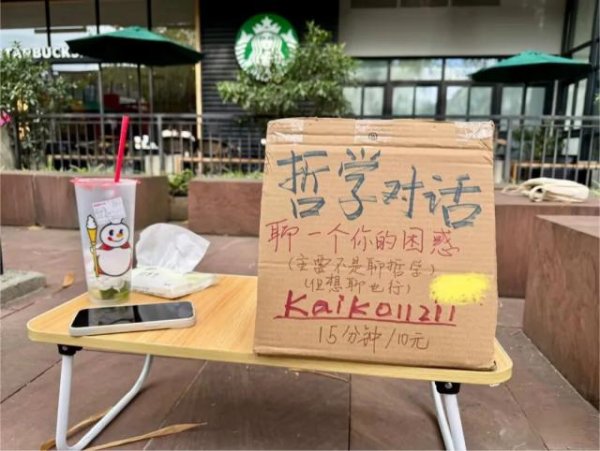 STARBUCKS
哲学对话
聊一个你的困惑
(主要不是聊哲学)
(但想聊也行)
Kaiko11211
15分钟/10元